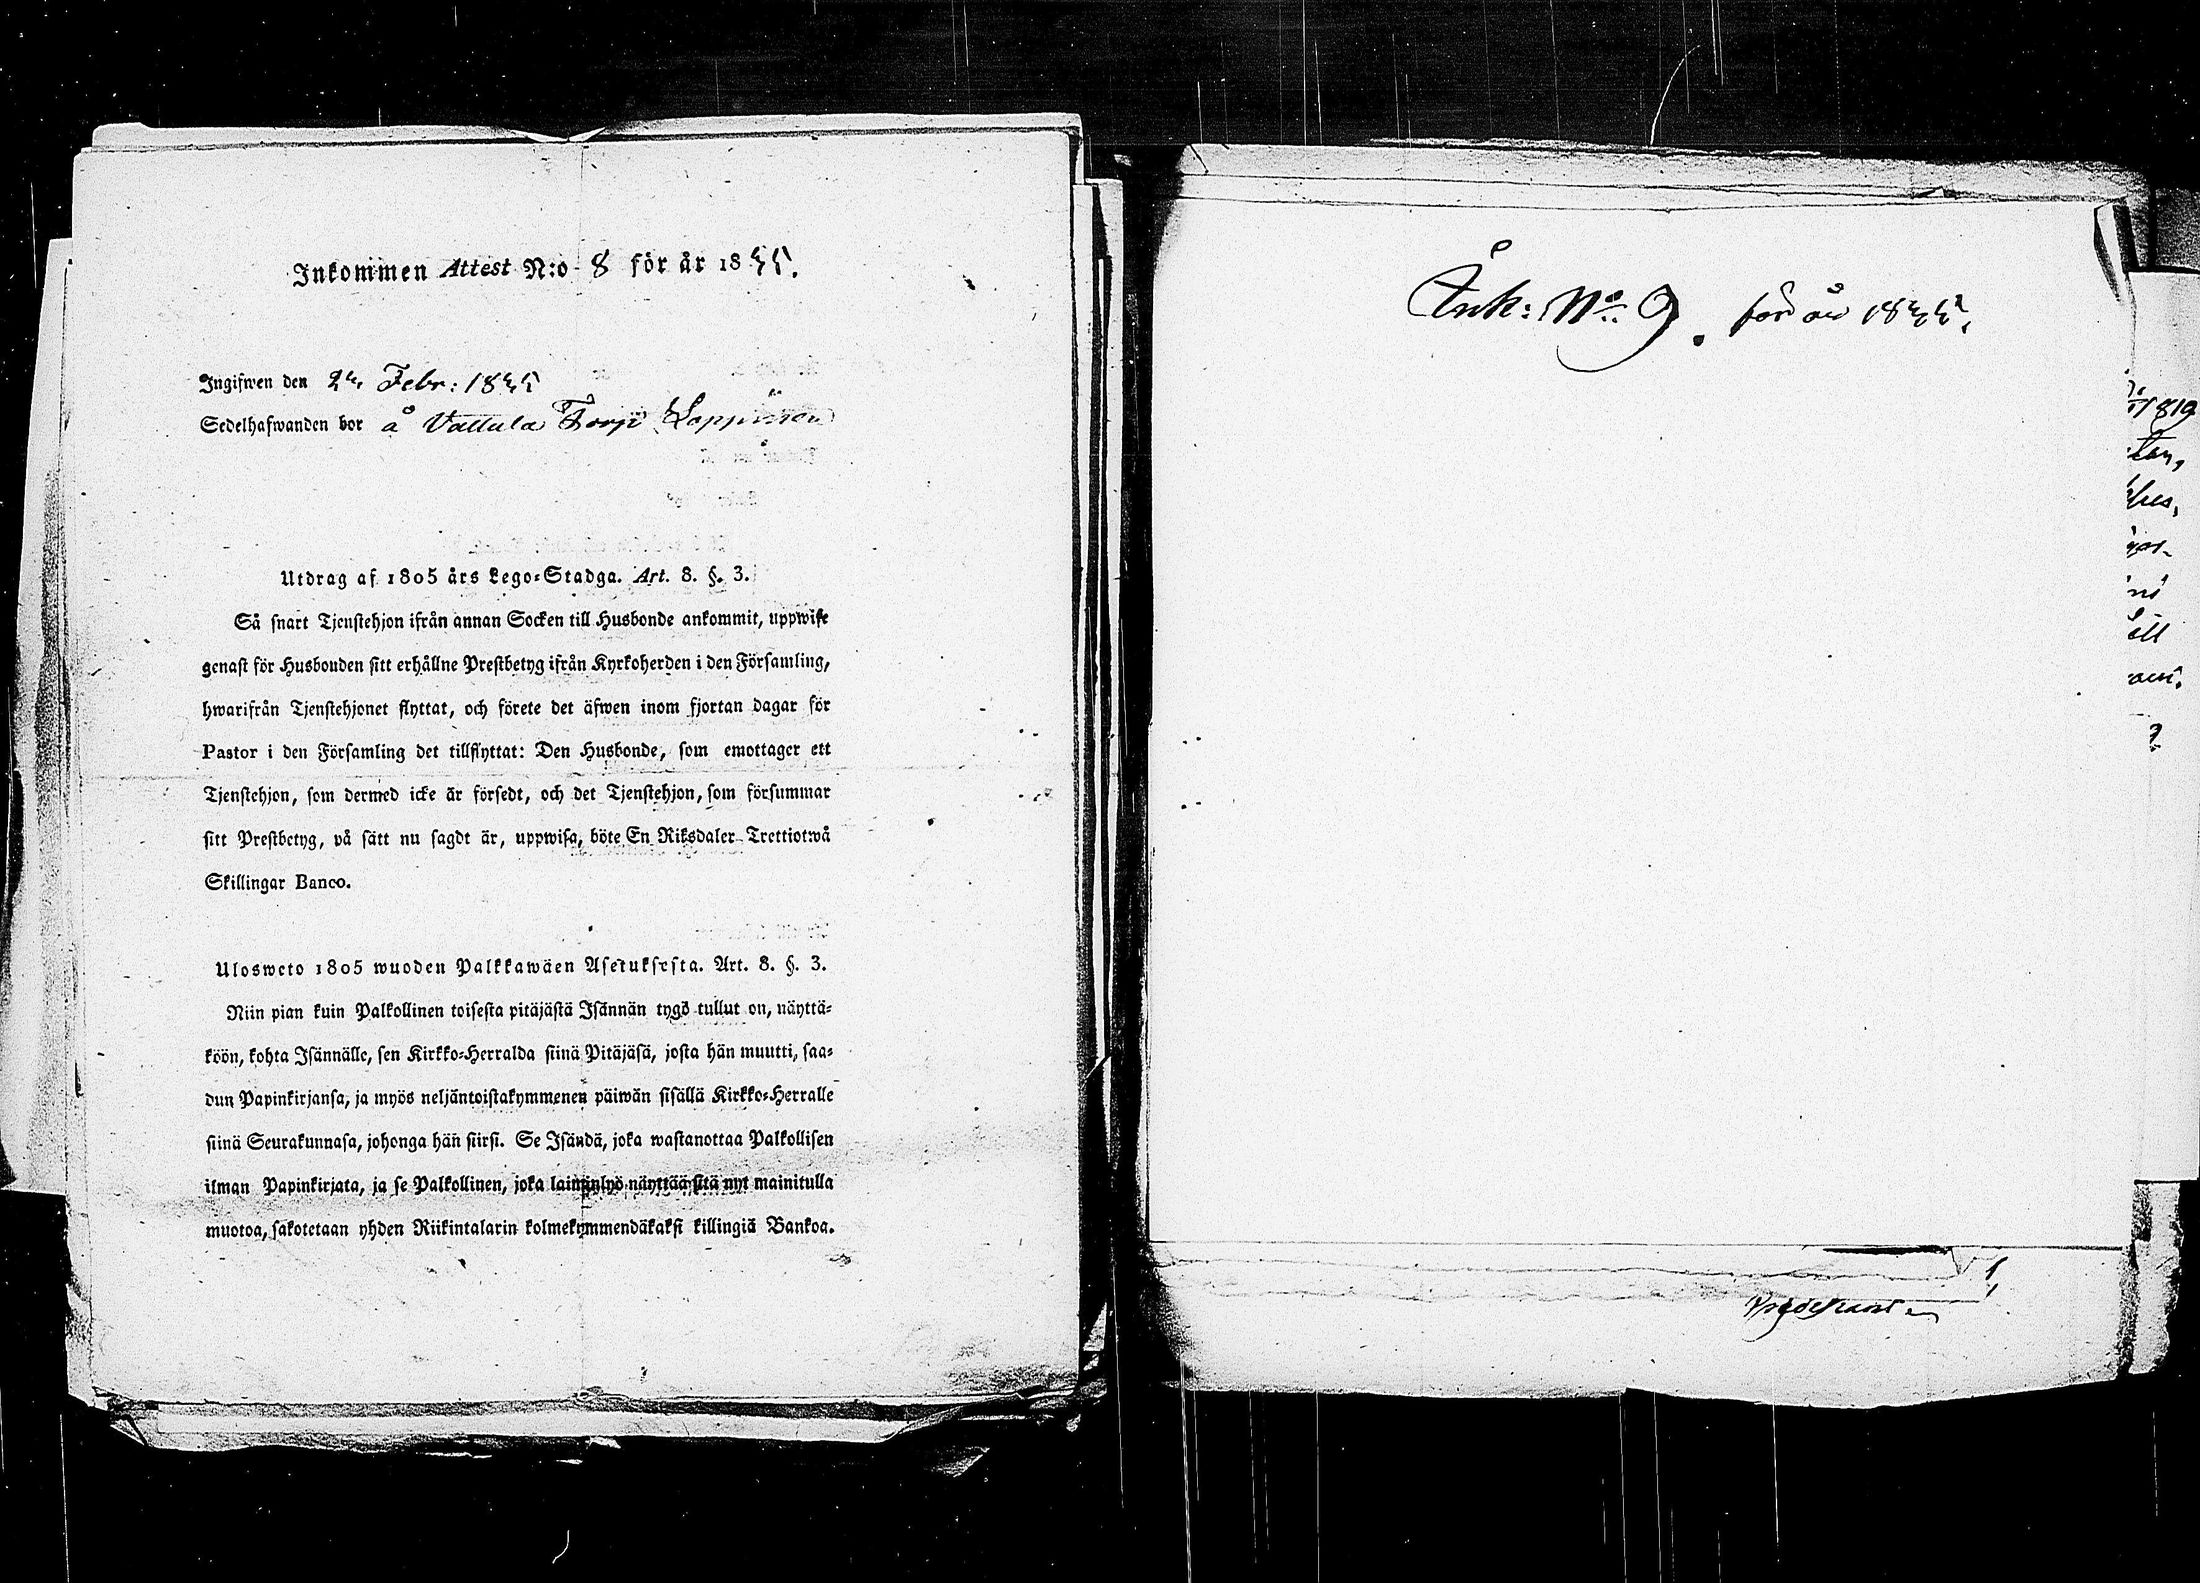 Inkommen Attest N:o 8 för år 1835.
Ingifwen den 24 Febr: 1835
Sedelhafwanden bor å Vattula Torp Lappinen
Utdrag af 1805 års Lego-Stadga. Art. 8. §. 3.
Så snart Tjenstehjon ifrån annan Socken till Husbonde ankommit, uppwise
genast för Husbonden sitt erhållne Prestbetyg ifrån Kyrkoherden i den Församling,
hwarifrån Tjenstehjonet flyttat, och förete det äfwen inom fjortan dagar för
Pastor i den Församling det tillflyttat: Den Husbonde, som emottager ett
Tjenstehjon, som dermed icke är försedt, och det Tjenstehjon, som försummar
sitt Prestbetyg, på sätt nu sagdt är, uppwisa, böte En Riksdaler Trettiotwå
Skillingar Banco.
Ulosweto 1805 wuoden Palkkawäen Asetuksesta. Art. 8. §. 3.
Niin pian kuin Palkollinen toisesta pitäjästä Isännän tygö tullut on, näyttä-
köön, kohta Isännälle, sen Kirkko-Herralda siinä Pitäjäsä, josta hän muutti, saa-
dun Papinkirjansa, ja myös neljäntoistakymmenen päiwän sisällä Kirkko-Herralle
siinä Seurakunnasa, johonga hän siirsi. Se Isändä, joka wastanottaa Palkollisen
ilman Papinkirjata, ja se Palkollinen, joka laiminlyö näyttää sitä nyt mainitulla
muotoa, sakotetaan yhden Riikintalarin kolmekymmendäkaksi killingiä Bankoa.
Ink: No. 9. för år 1835.
1819